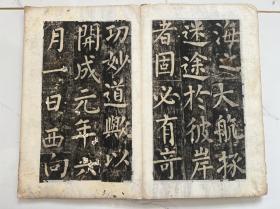 海之大航拯
迷途於彼岸
者固必有奇
功妙道歟以
開成元年六
月一日西向